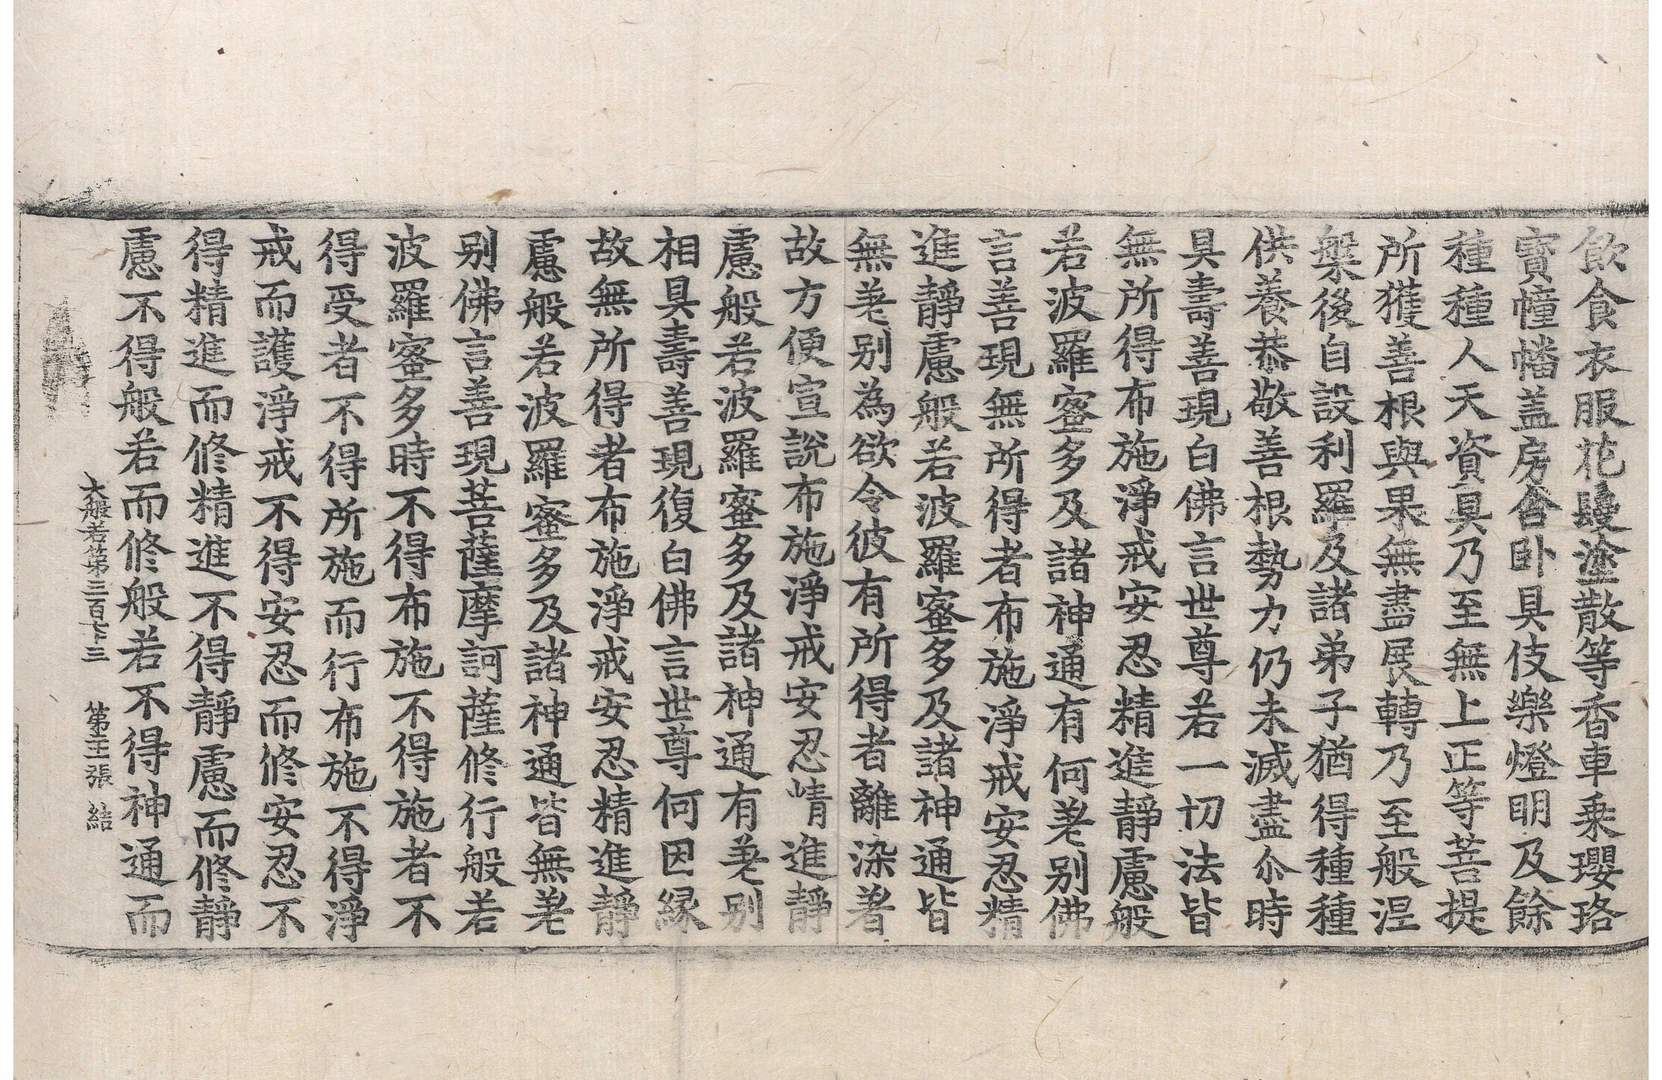 飲食衣服花鬘塗散等香車乗瓔珞
寳幢幡盖房舎卧具伎樂燈明及餘
種種人天資具乃至無上正等菩提
所獲善根與果無盡展轉乃至般涅
槃後自設利羅及諸弟子猶得種種
供養恭敬善根勢力仍未滅盡尒時
具壽善現白佛言世尊若一切法皆
無所得布施淨戒安忍精進靜慮般
若波羅蜜多及諸神通有何差别佛
言善現無所得者布施淨戒安忍精
進靜慮般若波羅蜜多及諸神通皆
無差别為欲令彼有所得者離染著
故方便宣說布施淨戒安忍精進靜
慮般若波羅蜜多及諸神通有差别
相具壽善現復白佛言世尊何因縁
故無所得者布施淨戒安忍精進靜
慮般若波羅蜜多及諸神通皆無差
别佛言善現菩薩摩訶薩修行般若
波羅蜜多時不得布施不得施者不
得受者不得所施而行布施不得淨
戒而護淨戒不得安忍而修安忍不
得精進而修精進不得靜慮而修靜
慮不得般若而修般若不得神通而
大般若第三百 三 第 張 結